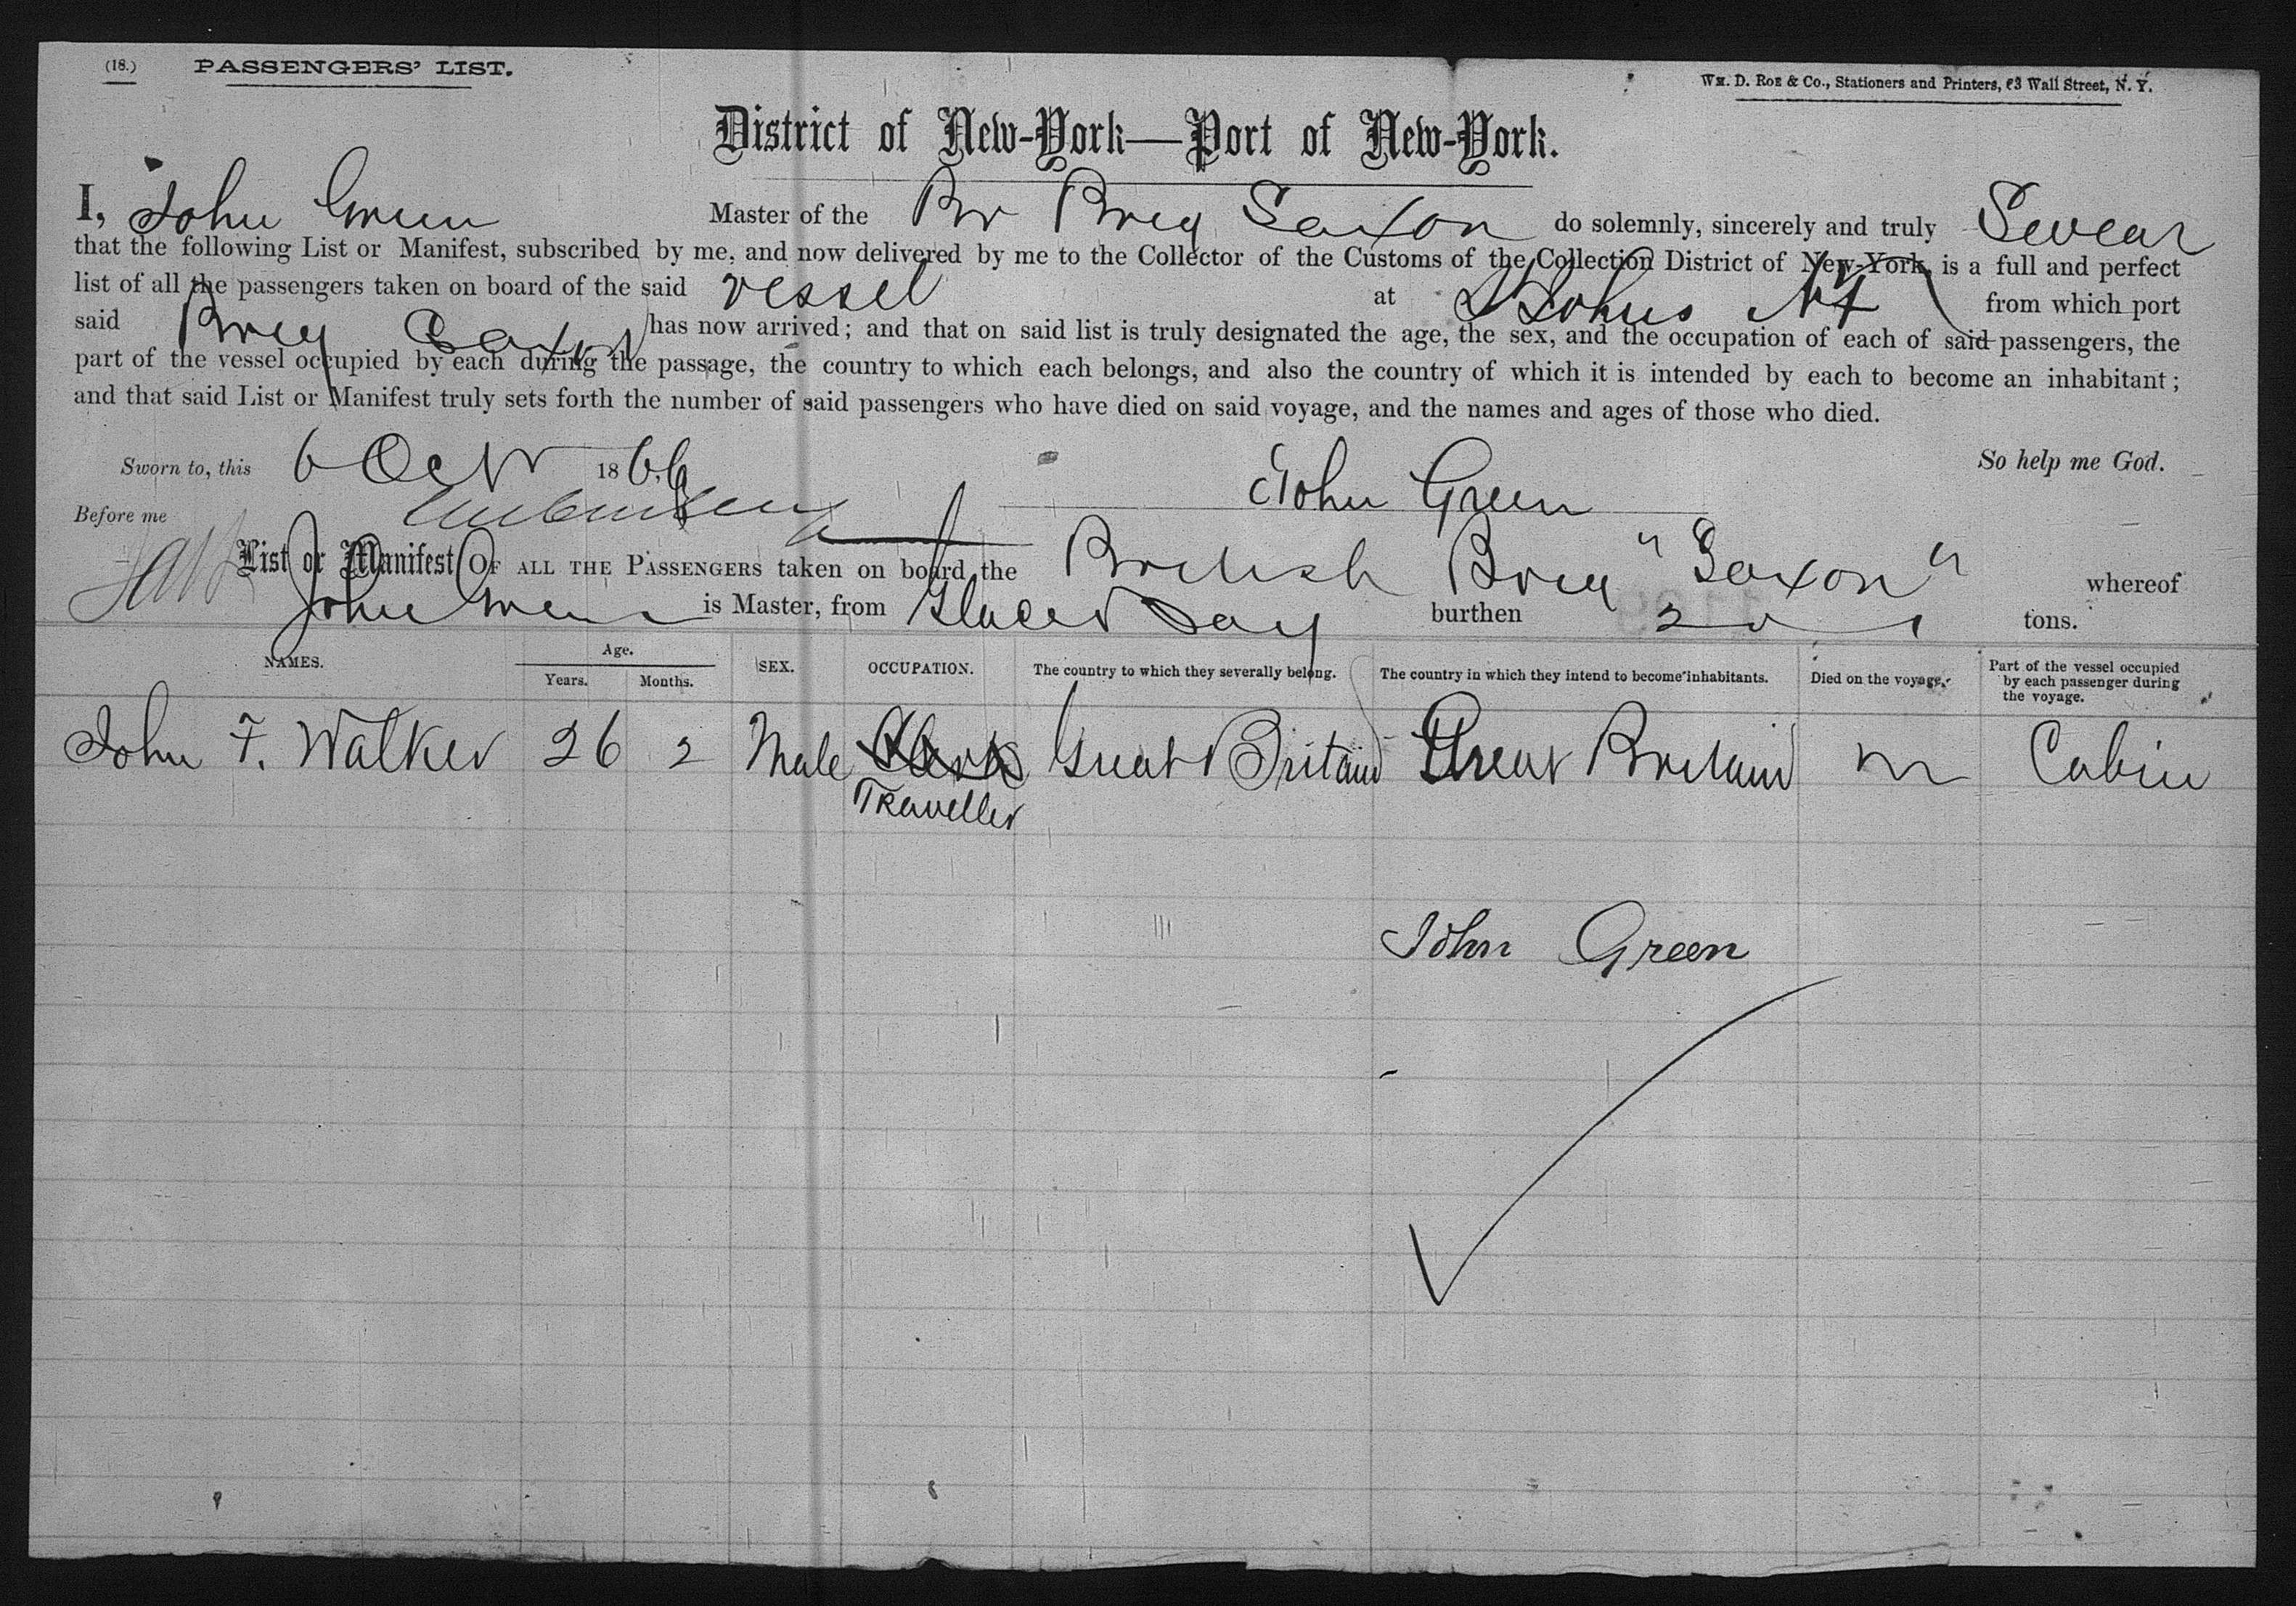 (18.) PASSENGERS' LIST.
Wm. D. Roe & Co., Stationers and Printers, 63 Wall Street, N. Y.
District of New-York—Port of New-York.
I, John Green Master of the Br Brig Saxon do solemnly, sincerely and truly Swear
that the following List or Manifest, subscribed by me, and now delivered by me to the Collector of the Customs of the Collection District of New-York, is a full and perfect
list of all the passengers taken on board of the said vessel at St Johns NF from which port
said Brig Saxon has now arrived; and that on said list is truly designated the age, the sex, and the occupation of each of said passengers, the
part of the vessel occupied by each during the passage, the country to which each belongs, and also the country of which it is intended by each to become an inhabitant;
and that said List or Manifest truly sets forth the number of said passengers who have died on said voyage, and the names and ages of those who died.
Sworn to, this 6 Oct 1866 So help me God.
John Green
Before me
List or Manifest OF ALL THE PASSENGERS taken on board the British Brig "Saxon" whereof
John Green is Master, from Glace Bay burthen tons.
NAMES. Age. Years. Months. SEX. OCCUPATION. The country to which they severally belong. The country in which they intend to become inhabitants. Died on the voyage. Part of the vessel occupied by each passenger during the voyage.
John F. Walker 26 2 Male Clerk Great Britain Great Britain Cabin
Traveller
John Green